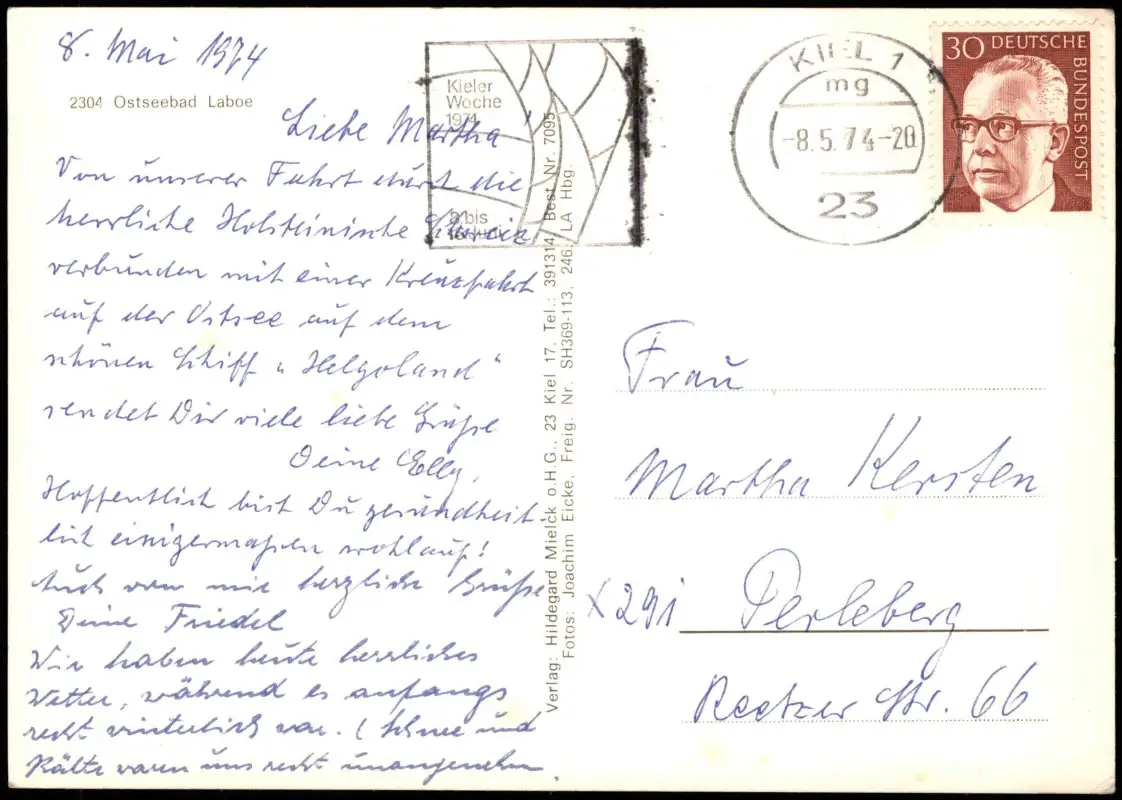 8. Mai 1974
2304 Ostseebad Laboe
Liebe Martha!
Von unserer Fahrt durch die
herrliche Holsteinische Schweiz
verbunden mit einer Kreuzfahrt
auf der Ostsee auf dem
schönen Schiff „Helgoland“
sendet Dir viele liebe Grüße
Deine Elly.
Hoffentlich bist Du gesundheit-
lich einigermaßen wohlauf!
Auch von mir herzliche Grüße
Deine Friedel
Wir haben heute herrliches
Wetter, während es anfangs
recht winterlich war. (Schnee und
Kälte waren uns recht unangenehm.
Kieler
Woche
1974
bis
KIEL 1
mg
-8.5.74-20
23
30 DEUTSCHE
BUNDESPOST
Verlag: Hildegard Mielck o.H.G., 23 Kiel 17, Tel.: 391314 Best. Nr. 7095
Fotos: Joachim Eicke, Freig. Nr. SH369-113, 246, LA Hbg.
Frau
Martha Kersten
x291 Perleberg
Reetzer Str. 66